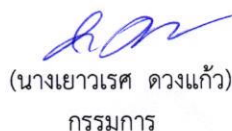 (นางเยาวเรศ ดวงแก้ว)
กรรมการ